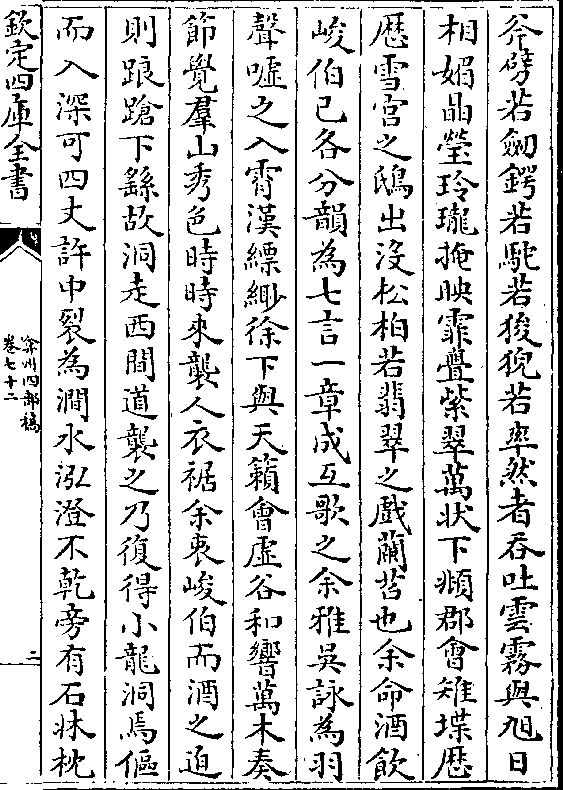 斧劈若劒鍔若駝若狻猊若率然者吞吐雲霧與旭日
相媚晶瑩玲瓏掩映霏疊紫翠萬状下頫郡會雉堞歴
歴雪宫之鴟出没松柏若翡翠之戲蘭苕也余命酒飲
峻伯已各分韻為七言一章成互歌之余雅吳詠為羽
聲嘘之入霄漢縹緲徐下與天籟會虚谷和響萬木奏
節覺羣山秀色時時來襲人衣裾余衷峻伯而酒之迫
則踉蹌下繇故洞走西間道襲之乃復得小龍洞焉傴
而入深可四丈許中裂為澗水泓澄不乾旁有石牀枕
欽定四庫全書
弇州四部稿
卷七十二
二